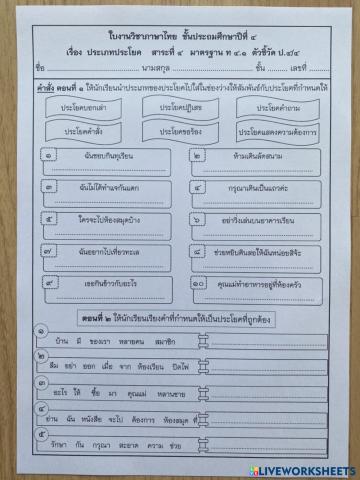 ใบงานวิชาภาษาไทย ชั้นประถมศึกษาปีที่ ๔
เรื่อง ประเภทประโยค สาระที่ ๔ มาตรฐาน ท ๔.๑ ตัวชี้วัด ป.๔/๔
ชื่อ นามสกุล ชั้น เลขที่
คำสั่ง ตอนที่ ๑ ให้นักเรียนนำประเภทของประโยคไปใส่ในช่องว่างให้สัมพันธ์กับประโยคที่กำหนดให้
ประโยคบอกเล่า ประโยคปฏิเสธ ประโยคคำถาม
ประโยคคำสั่ง ประโยคขอร้อง ประโยคแสดงความต้องการ
๑ ฉันชอบกินทุเรียน ๒ ห้ามเดินลัดสนาม
๓ ฉันไม่ได้ทำแจกันแตก ๔ กรุณาเดินเป็นแถวค่ะ
๕ ใครจะไปห้องสมุดบ้าง ๖ อย่าวิ่งเล่นบนอาคารเรียน
๗ ฉันอยากไปเที่ยวทะเล ๘ ช่วยหยิบดินสอให้ฉันหน่อยสิจ๊ะ
๙ เธอกินข้าวกับอะไร ๑๐ คุณแม่ทำอาหารอยู่ที่ห้องครัว
ตอนที่ ๒ ให้นักเรียนเรียงคำที่กำหนดให้เป็นประโยคที่ถูกต้อง
๑ บ้าน มี ของเรา หลายคน สมาชิก
๒ ลืม อย่า ออก เมื่อ จาก ห้องเรียน ปิดไฟ
๓ อะไร ให้ ซื้อ มา คุณแม่ หลานชาย
๔ อ่าน ฉัน หนังสือ จะไป ต้องการ ห้องสมุด ที่
๕ รักษา กัน กรุณา สะอาด ความ ช่วย
LIVEWORKSHEETS